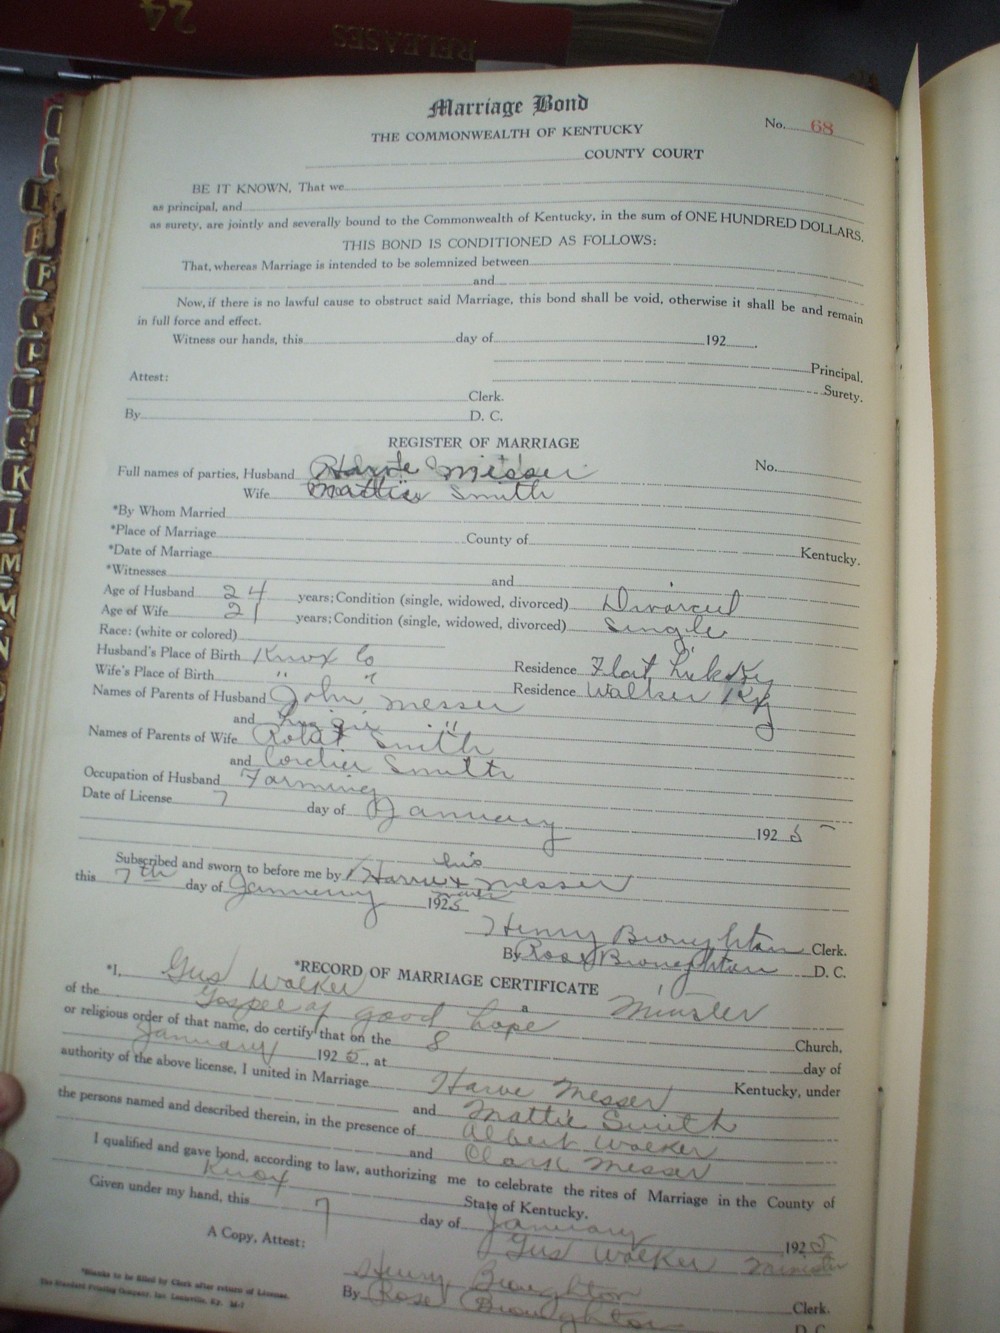 24
RELEASES
Marriage Bond
No. 68
THE COMMONWEALTH OF KENTUCKY
COUNTY COURT
BE IT KNOWN, That we
as principal, and
as surety, are jointly and severally bound to the Commonwealth of Kentucky, in the sum of ONE HUNDRED DOLLARS.
THIS BOND IS CONDITIONED AS FOLLOWS:
That, whereas Marriage is intended to be solemnized between
and
Now, if there is no lawful cause to obstruct said Marriage, this bond shall be void, otherwise it shall be and remain
in full force and effect.
Witness our hands, this day of 192 .
Principal.
Attest: Surety.
Clerk.
By D. C.
REGISTER OF MARRIAGE
No.
Full names of parties, Husband Harve Messer
Wife Mattie Smith
*By Whom Married
*Place of Marriage County of Kentucky.
*Date of Marriage
*Witnesses and
Age of Husband 24 years; Condition (single, widowed, divorced) Divorced
Age of Wife 21 years; Condition (single, widowed, divorced) Single
Race: (white or colored)
Husband's Place of Birth Knox Co Residence Flat Lick Ky
Wife's Place of Birth " " Residence Walker Ky
Names of Parents of Husband John Messer
and "
Names of Parents of Wife Robt Smith
and Smith
Occupation of Husband Farming
Date of License 7 day of January 192 5
Subscribed and sworn to before me by Harve his x mark Messer
this 7th day of January 1925
Henry Broughton Clerk.
By Rose Broughton D. C.
*RECORD OF MARRIAGE CERTIFICATE
*I, Gus Walker a Minister
of the Gospel of good hope Church,
or religious order of that name, do certify that on the 8 day of
January 1925, at Kentucky, under
authority of the above license, I united in Marriage Harve Messer
and Mattie Smith
the persons named and described therein, in the presence of Albert Walker
and Clark Messer
I qualified and gave bond, according to law, authorizing me to celebrate the rites of Marriage in the County of
Knox State of Kentucky.
Given under my hand, this 7 day of January 1925
Gus Walker Minister
A Copy, Attest:
Henry Broughton Clerk.
By Rose Broughton D. C.
*Blanks to be filled by Clerk after return of License.
The Standard Printing Company, Inc. Louisville, Ky.
F
K
M
M
N